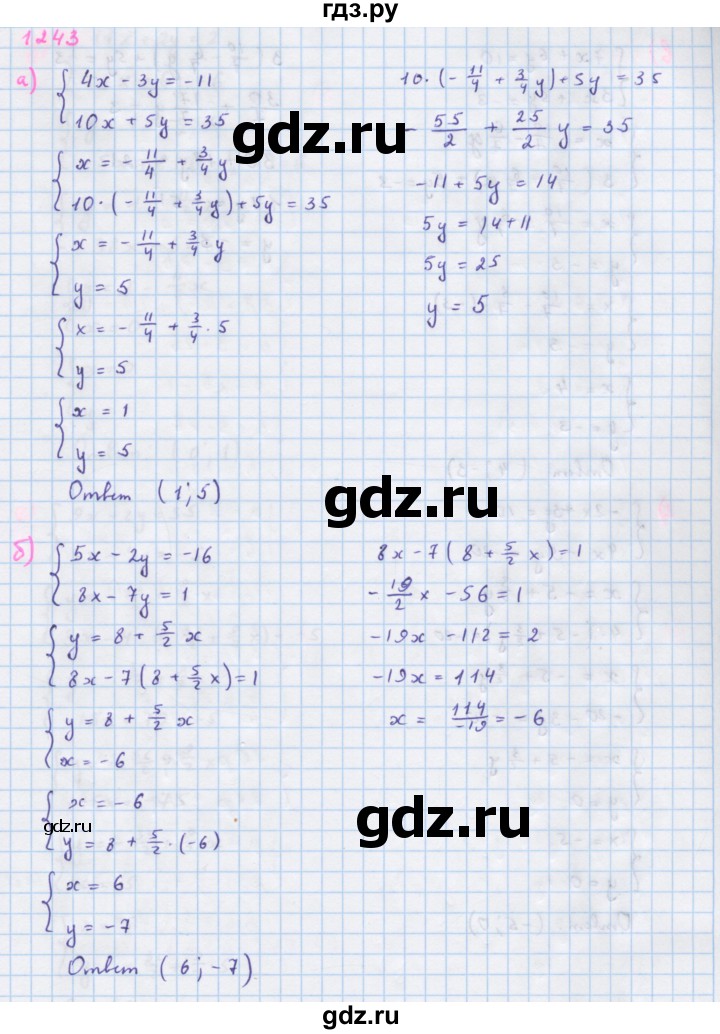 гдз.ру
1243
а) { 4x - 3y = -11
10x + 5y = 35
{ x = - 11/4 + 3/4 y
10·(- 11/4 + 3/4 y) + 5y = 35
{ x = - 11/4 + 3/4 · y
y = 5
{ x = - 11/4 + 3/4 · 5
y = 5
{ x = 1
y = 5
Ответ (1; 5)
10·(- 11/4 + 3/4 y) + 5y = 35
- 55/2 + 25/2 y = 35
-11 + 5y = 14
5y = 14 + 11
5y = 25
y = 5
gdz.ru
gdz.ru
б) { 5x - 2y = -16
8x - 7y = 1
{ y = 8 + 5/2 x
8x - 7(8 + 5/2 x) = 1
{ y = 8 + 5/2 x
x = -6
{ x = -6
y = 8 + 5/2 · (-6)
{ x = 6
y = -7
Ответ (6; -7)
8x - 7(8 + 5/2 x) = 1
- 19/2 x - 56 = 1
-19x - 112 = 2
-19x = 114
x = 114/-19 = -6
gdz.ru
gdz.ru
gdz.ru